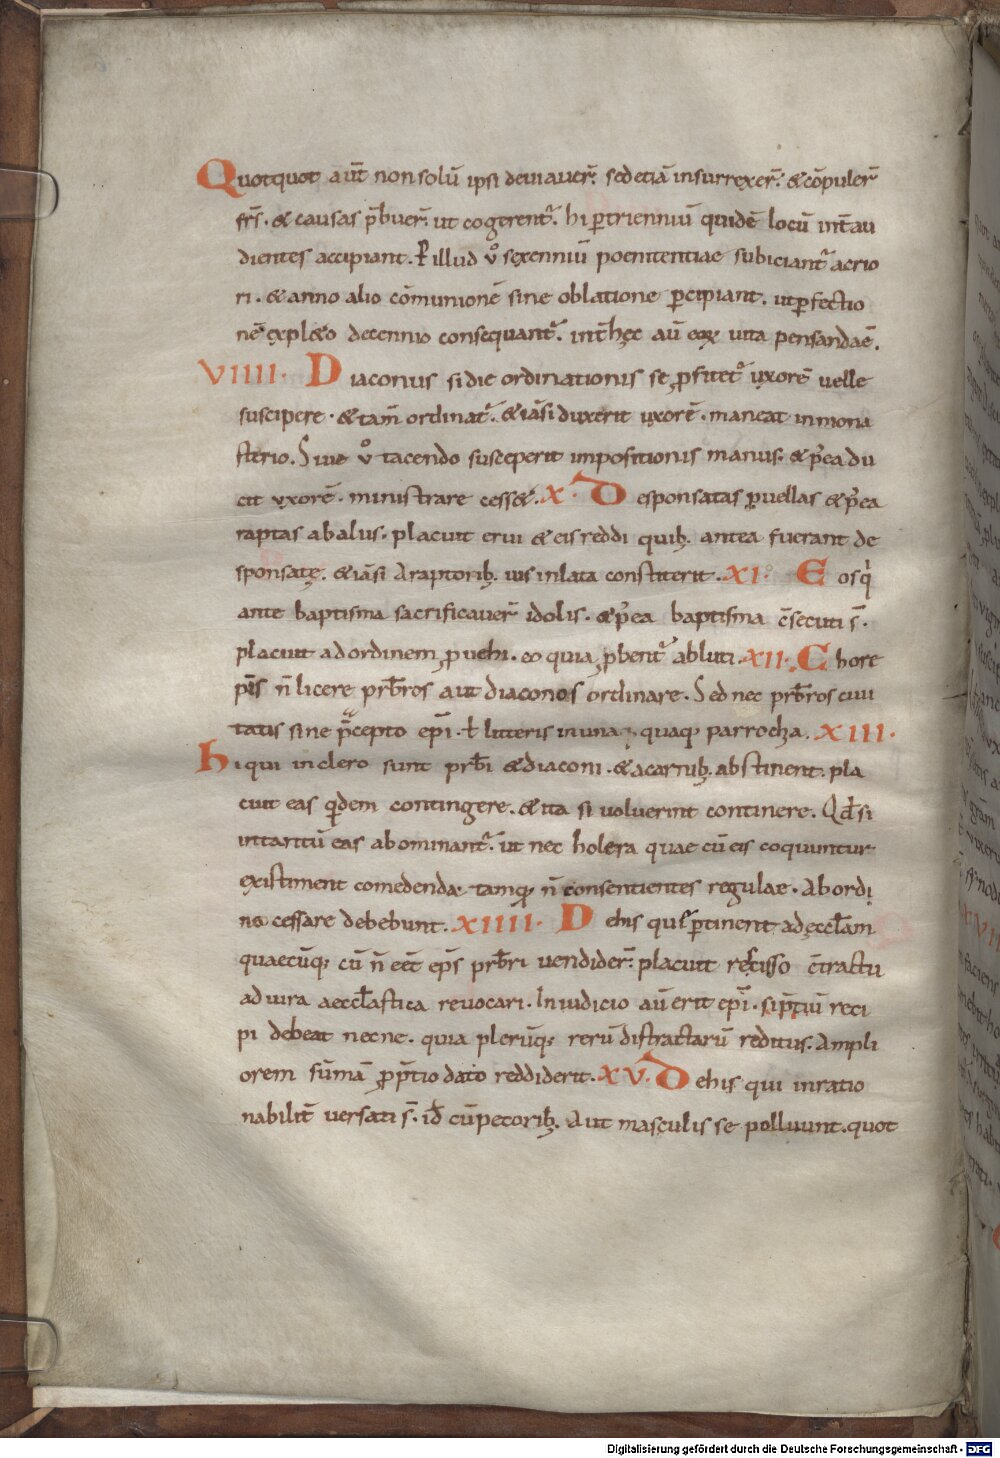 Quotquot aut̄ non solū ipsi deviauer̄. sed etiā insurrexer̄. & cōpuler̄
fr̄s. & causas p̄buer̄. ut cogerent᷑. hi p̱ trienniū quidē locū int̄ au
dientes accipiant. P̱ illud v̊ sexenniū poenitentiae subiciant᷑ acrio
ri. & anno alio cōmunionē sine oblatione p̱cipiant. ut p̱fectio
nē expl&o decennio consequant᷑. int̄ hęc aū eoꝝ uita pensanda ē.
VIIII. Diaconus si die ordinationis sę ꝓfitet᷑ uxorē uelle
suscipere. & tam̄ ordinat᷑. & iā si duxerit uxorē. maneat in mona
sterio. Siue v̊ tacendo susceperit impositionis manus. & p̄ ea du
cit uxorē. ministrare cess&. X. Desponsatas puellas & p̄ ea
raptas ab aliis. placuit erui & eis reddi quib; antea fuerant de
sponsatę. & iā si a raptorib; uis inlata constiterit. XI. Eos q̇
ante baptisma sacrificauer̄ idolis. & p̄ ea baptisma c̄secuti s̄.
placuit ad ordinem ꝓuehi. eo quia ꝓbent᷑ abluti. XII. Chore
pīs n̄ licere prb̄ros aut diaconos ordinare. Sed nec prb̄ros ciui
tatis sine p̄cepto ep̄i. ł litteris in una quaq; parrochia. XIII.
Hi qui in clero sunt prb̄i & diaconi. & a carnib; abstinent. pla
cuit eas q̇dem contingere. & ita si uoluerint continere. Qd̄ si
in tantū eas abominant᷑. ut nec holera quae cū eis coquuntur
existiment comedenda. tamq̄; n̄ consentientes regulae. Ab ordi
ne cessare debebunt. XIIII. De his quę p̱tinent ad ęccl̄am
quaecūq; cū n̄ eēt ep̄s prb̄ri uendider̄. placuit rescisso c̄tractu
ad iura aeccl̄astica reuocari. In iudicio aū erit ep̄i. si p̄tiū reci
pi debeat necne. quia plerūq; rerū distractarū reditus. Ampli
orem sūmā ꝓ p̄tio dato reddiderit. XV. De his qui inratio
nabilit̄ uersati s̄. id̄ cū pecorib; Aut masculis se polluunt. quot
Digitalisierung gefördert durch die Deutsche Forschungsgemeinschaft - DFG